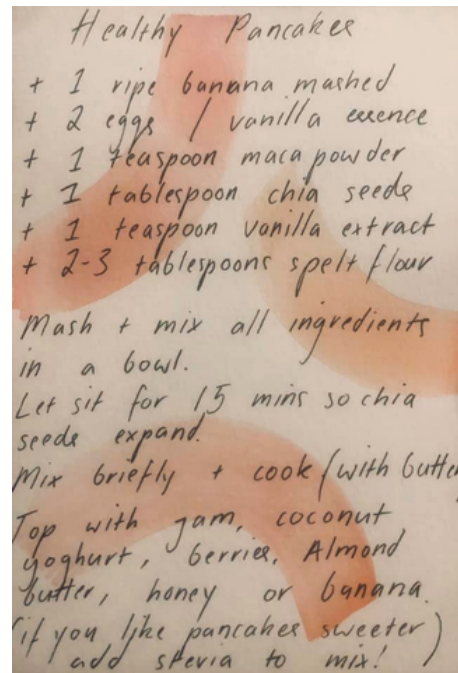 Healthy Pancakes
+ 1 ripe banana mashed
+ 2 eggs / vanilla essence
+ 1 teaspoon maca powder
+ 1 tablespoon chia seeds
+ 1 teaspoon vanilla extract
+ 2-3 tablespoons spelt flour
Mash + mix all ingredients
in a bowl.
Let sit for 15 mins so chia
seeds expand.
Mix briefly + cook (with butter
Top with jam, coconut
yoghurt, berries, Almond
butter, honey or banana.
(if you like pancakes sweeter)
add stevia to mix!